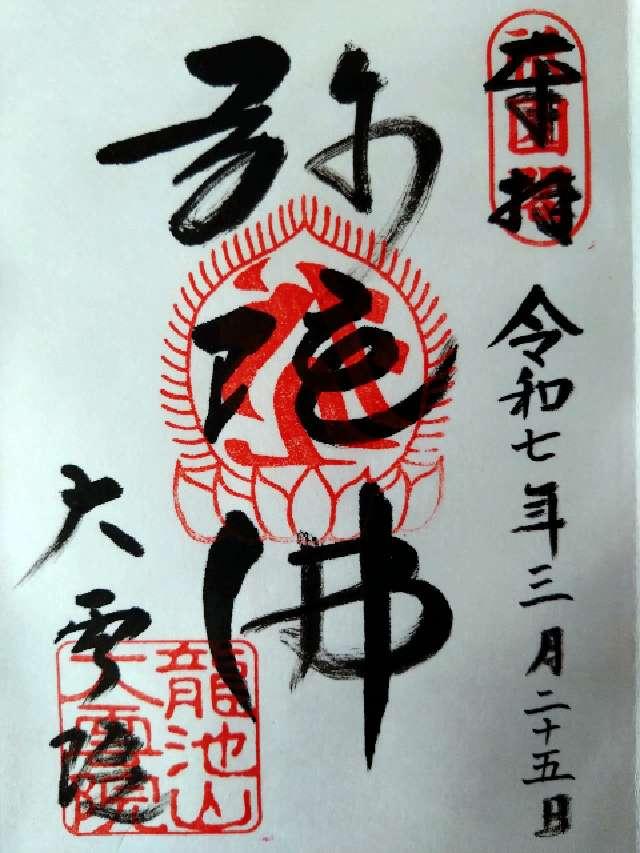 奉拝
令和七年三月二十五日
弥陀佛
大雲院
龍池山
大雲院